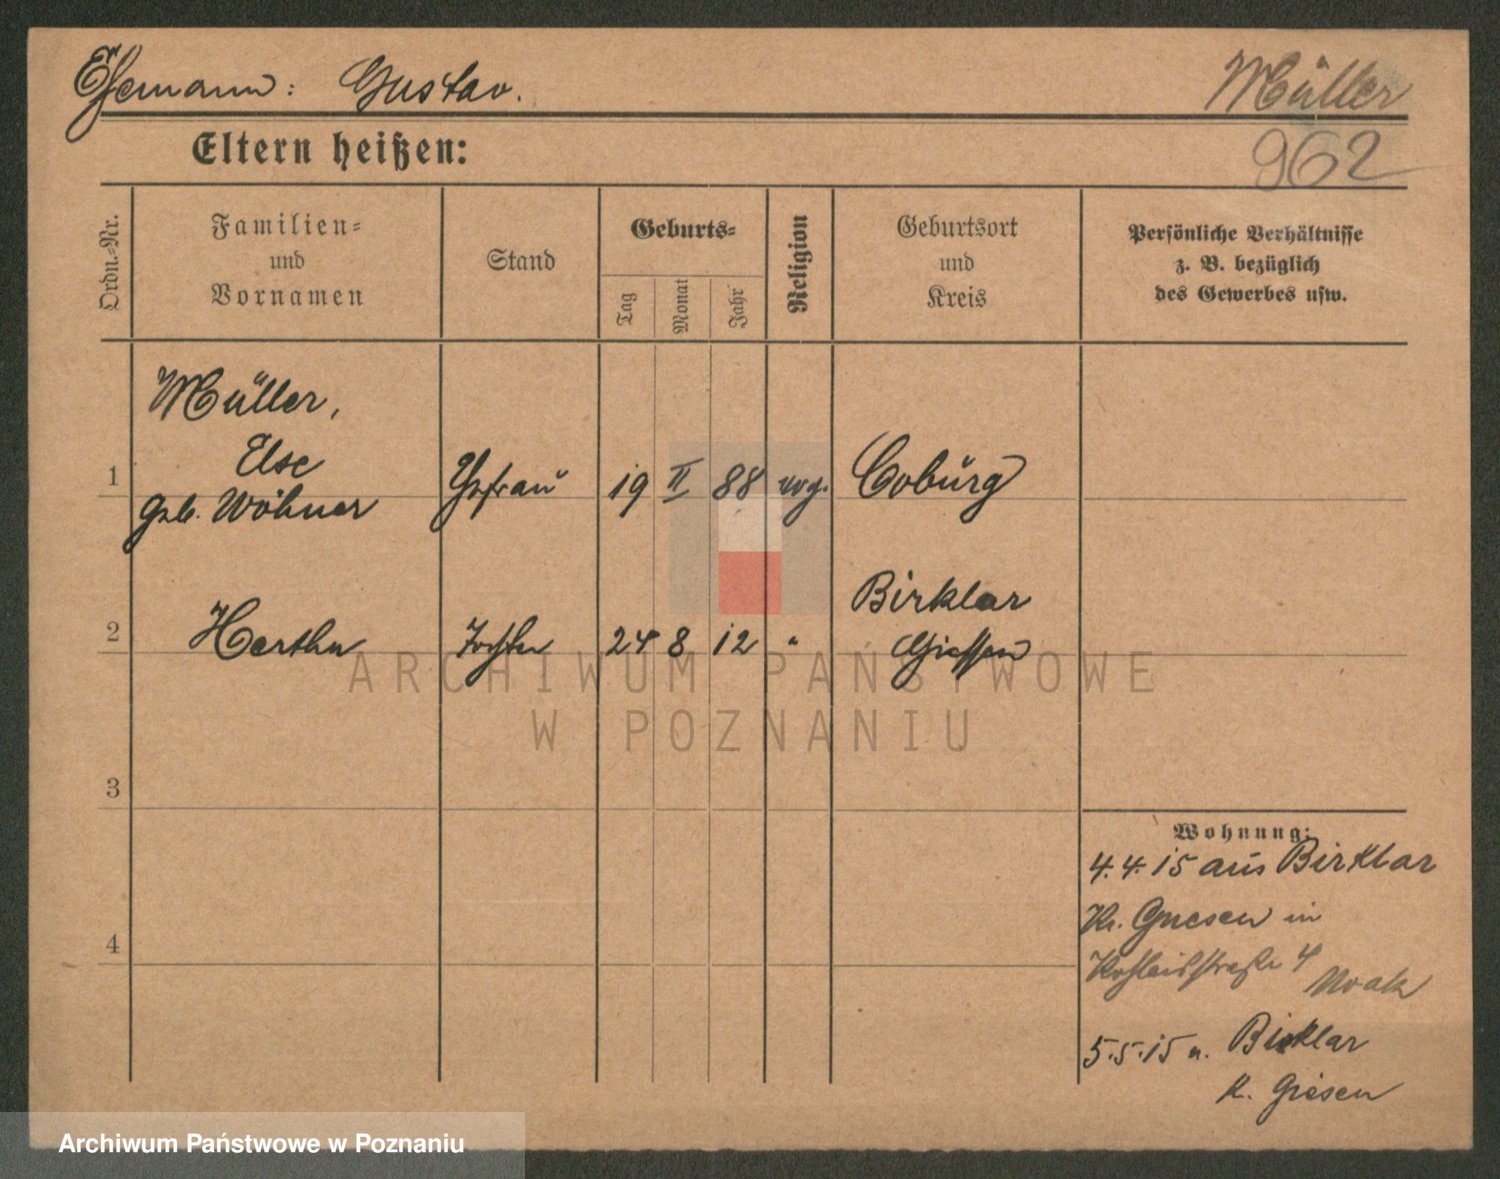 Ehemann: Gustav.
Müller
962
Eltern heißen:
Ordn.-Nr.
Familien-
und
Vornamen
Stand
Geburts-
Tag
Monat
Jahr
Religion
Geburtsort
und
Kreis
Persönliche Verhältnisse
z. B. bezüglich
des Gewerbes usw.
Müller,
Else
1
geb. Wöhner
Ehefrau
19 II 88 evg. Coburg
2 Hertha Tochter 24 8 12 " Birklar
Giessen
3
4
Wohnung:
4.4.15 aus Birklar
Kr. Gnesen in
4 Noak
5.5.15 n. Birklar
K. Giesen
ARCHIWUM PAŃSTWOWE
W POZNANIU
Archiwum Państwowe w Poznaniu